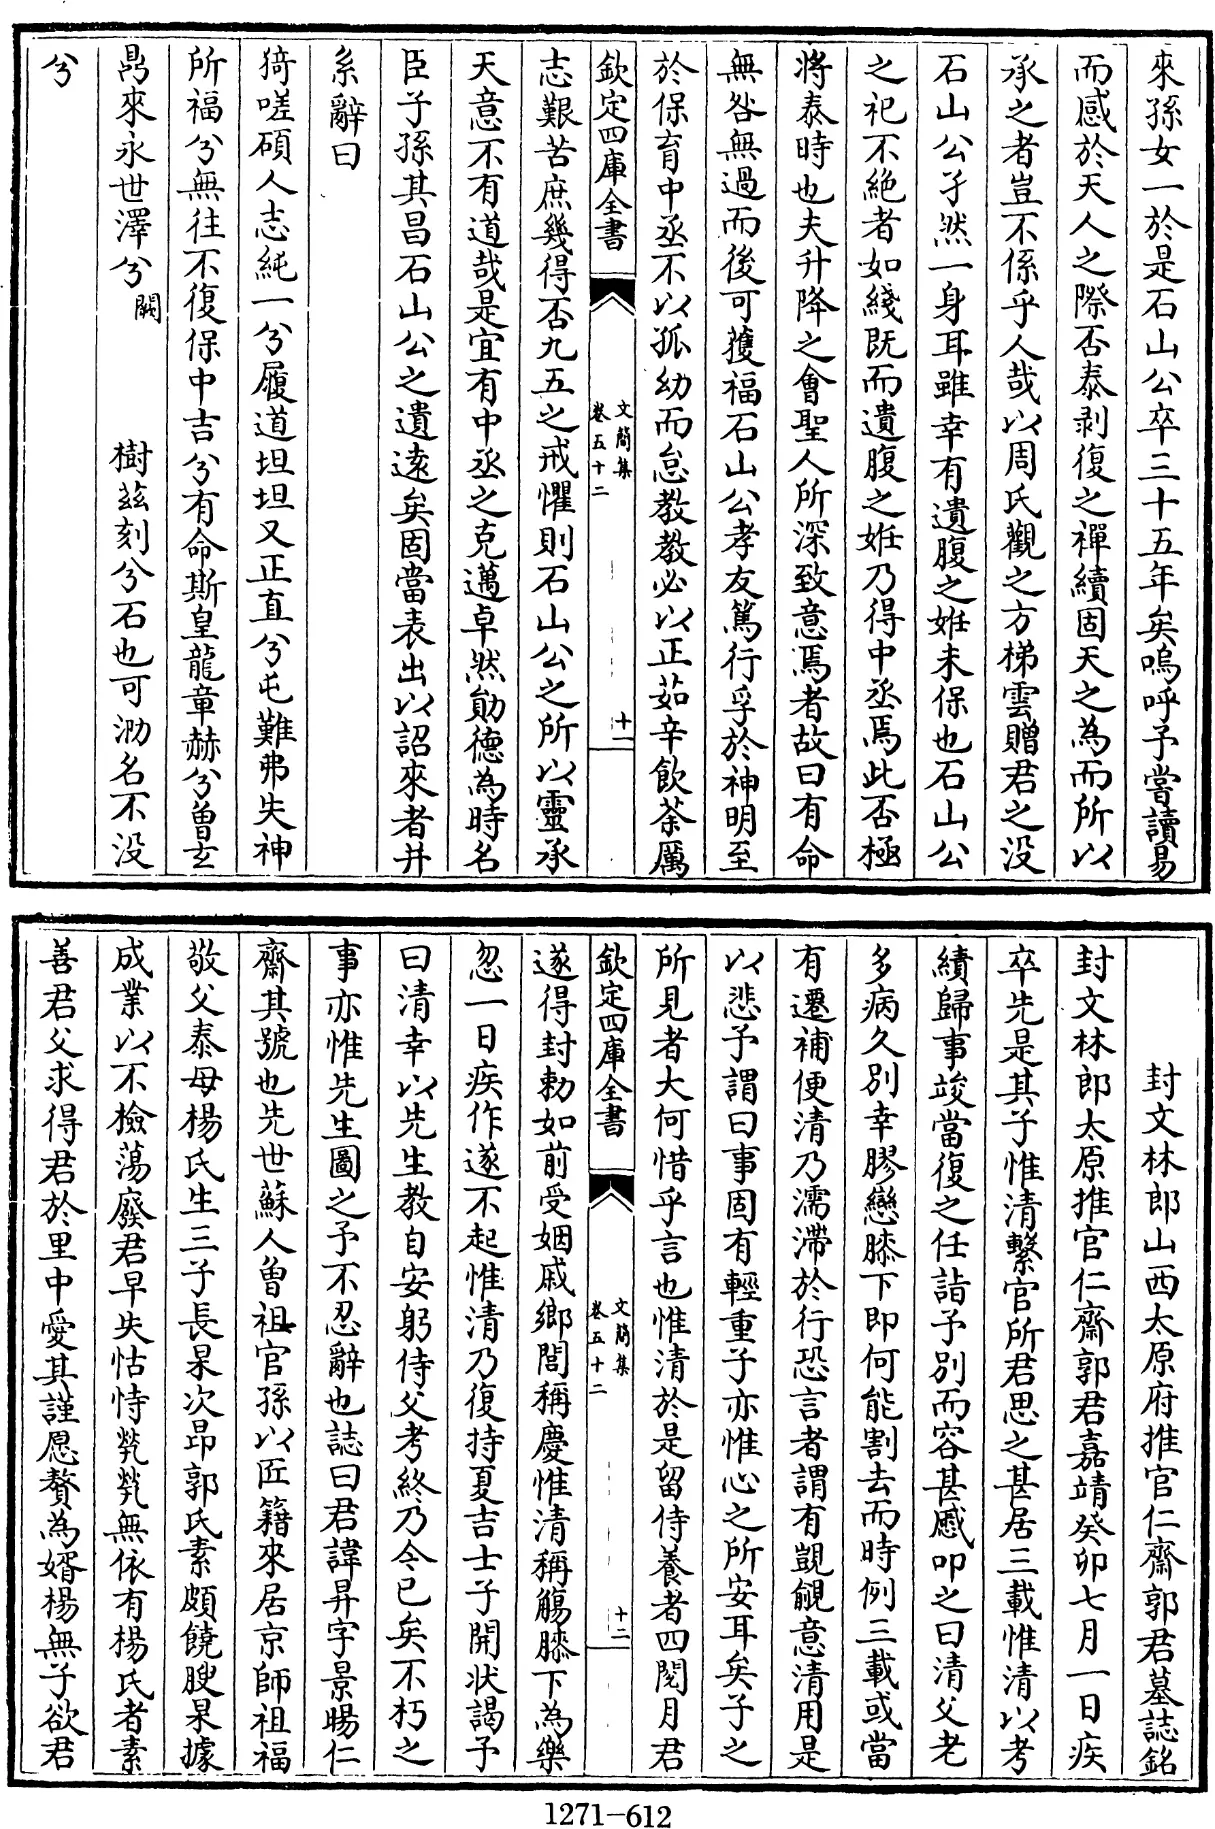 來孫女一於是石山公卒三十五年矣嗚呼予嘗讀易
而感於天人之際否泰剥復之禪續固天之為而所以
承之者豈不係乎人哉以周氏觀之方梯雲贈君之没
石山公孑然一身耳雖幸有遺腹之姙未保也石山公
之祀不絶者如綫既而遺腹之姙乃得中丞焉此否極
將泰時也夫升降之會聖人所深致意焉者故曰有命
無咎無過而後可獲福石山公孝友篤行孚於神明至
於保育中丞不以孤幼而怠教教必以正茹辛飲荼厲
欽定四庫全書
文簡集
卷五十二
十一
志艱苦庶幾得否九五之戒懼則石山公之所以靈承
天意不有道哉是宜有中丞之克邁卓然勛德為時名
臣子孫其昌石山公之遺逺矣固當表出以詔來者并
系辭曰
猗嗟碩人志純一兮履道坦坦又正直兮屯難弗失神
所福兮無往不復保中吉兮有命斯皇龍章赫兮曽𤣥
曷來永世澤兮闕 樹茲刻兮石也可泐名不没
兮
封文林郎山西太原府推官仁齋郭君墓誌銘
封文林郎太原推官仁齋郭君嘉靖癸卯七月一日疾
卒先是其子惟清繫官所君思之甚居三載惟清以考
績歸事竣當復之任詣予别而容甚慼叩之曰清父老
多病久别幸膠戀膝下即何能割去而時例三載或當
有遷補便清乃濡滯於行恐言者謂有覬覦意清用是
以悲予謂曰事固有輕重子亦惟心之所安耳矣子之
所見者大何惜乎言也惟清於是留侍養者四閲月君
欽定四庫全書
文簡集
卷五十二
十二
遂得封勅如前受姻戚鄉閭稱慶惟清稱觴膝下為樂
忽一日疾作遂不起惟清乃復持夏吉士子開状謁予
曰清幸以先生教自安躬侍父考終乃今已矣不朽之
事亦惟先生圖之予不忍辭也誌曰君諱昇字景暘仁
齋其號也先世蘇人曽祖官孫以匠籍來居京師祖福
敬父泰母楊氏生三子長杲次昂郭氏素頗饒腴杲據
成業以不檢蕩廢君早失怙恃煢煢無依有楊氏者素
善君父求得君於里中愛其謹愿贅為婿楊無子欲君
1271-612